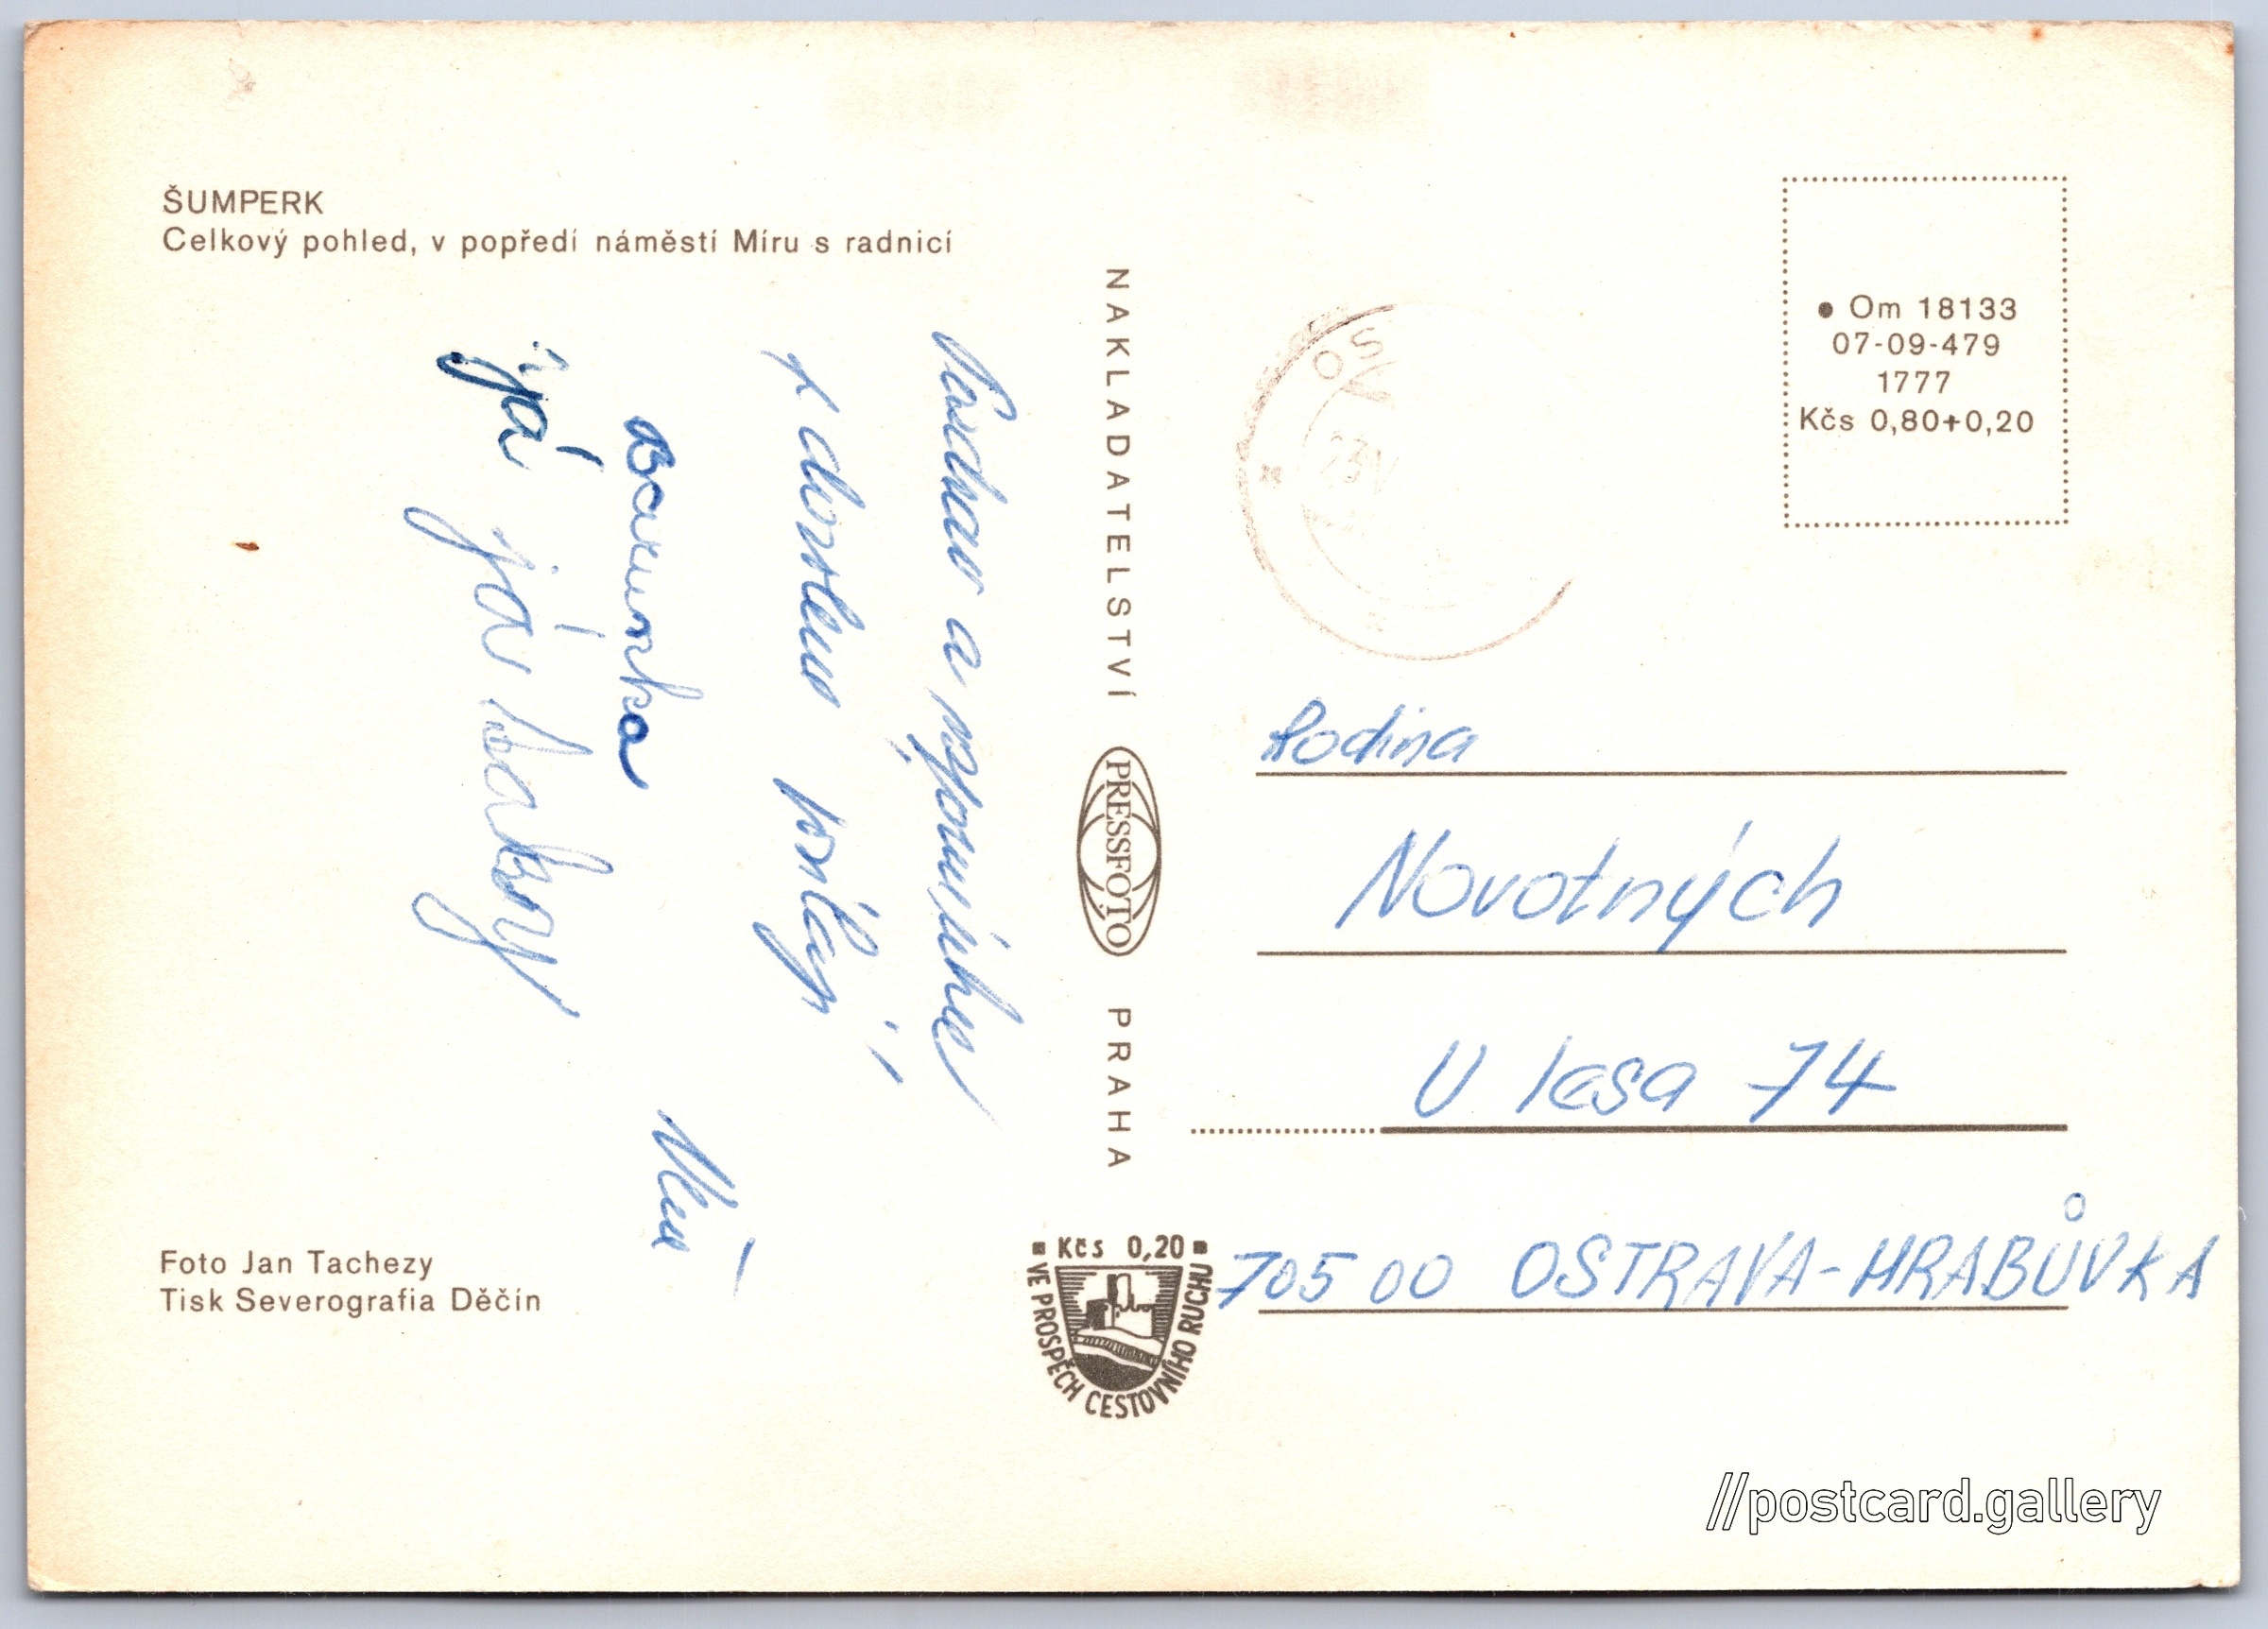 ŠUMPERK
Celkový pohled, v popředí náměstí Míru s radnicí
Pozdrav a vzpomínku
z dovolené posílají
Barunka
já
Foto Jan Tachezy
Tisk Severografia Děčín
NAKLADATELSTVÍ PRESSFOTO PRAHA
Kčs 0,20
VE PROSPĚCH CESTOVNÍHO RUCHU
• Om 18133
07-09-479
1777
Kčs 0,80+0,20
OS
23 V
Rodina
Novotných
U lesa 74
705 00 OSTRAVA-HRABŮVKA
//postcard.gallery